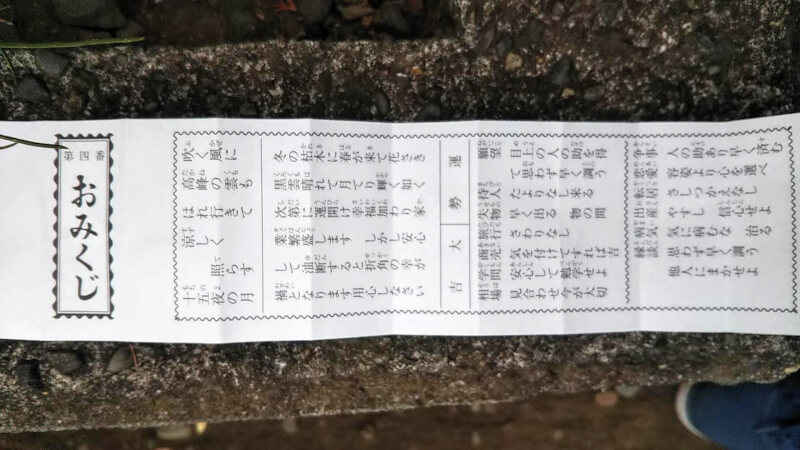 おみくじ
吹く風に
高峰の雲も
はれ行きて
涼しく照らす
十五夜の月
冬の枯木に春が来て花さき
黒雲晴れて月てり輝く如く
次第に運開け幸福加わり家
業繁盛します しかし安心
して油断すると折角の幸が
禍となります用心しなさい
運勢 大吉
願望 目上の人の助を得
て思わず早く調う
待人 たよりなし来る
失物 早く出る 物の間
旅行 さわりなし
商売 気を付けてすれば吉
学問 安心して勉学せよ
相場 見合わせ今が大切
争事 人の助あり早く済む
恋愛 容姿より心を選べ
転居 さしつかえなし
出産 やすし 信心せよ
病気 気に病むな 治る
縁談 思わず早く調う
他人にまかせよ